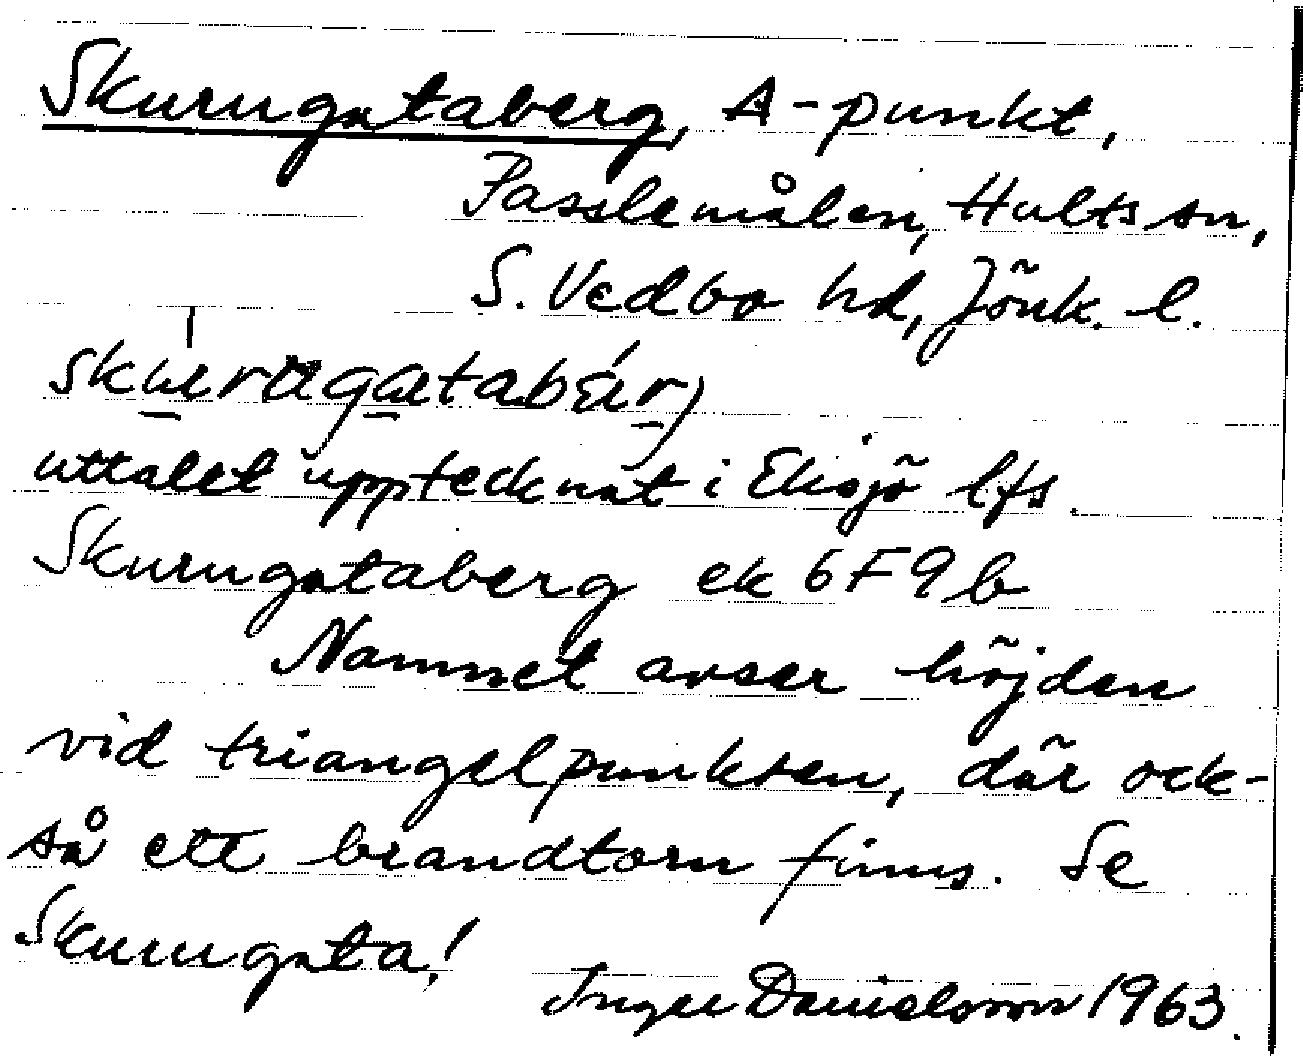 Skurugataberg, A-punkt,
Passlemålen, Hults sn,
S. Vedbo hd, Jönk. l.
uttalet upptecknat i Eksjö lfs.
Skurugataberg ek 6F9b
Namnet avser höjden
vid triangelpunkten, där ock-
så ett brandtorn finns. Se
Skurugata!
Inger Danielsson 1963.